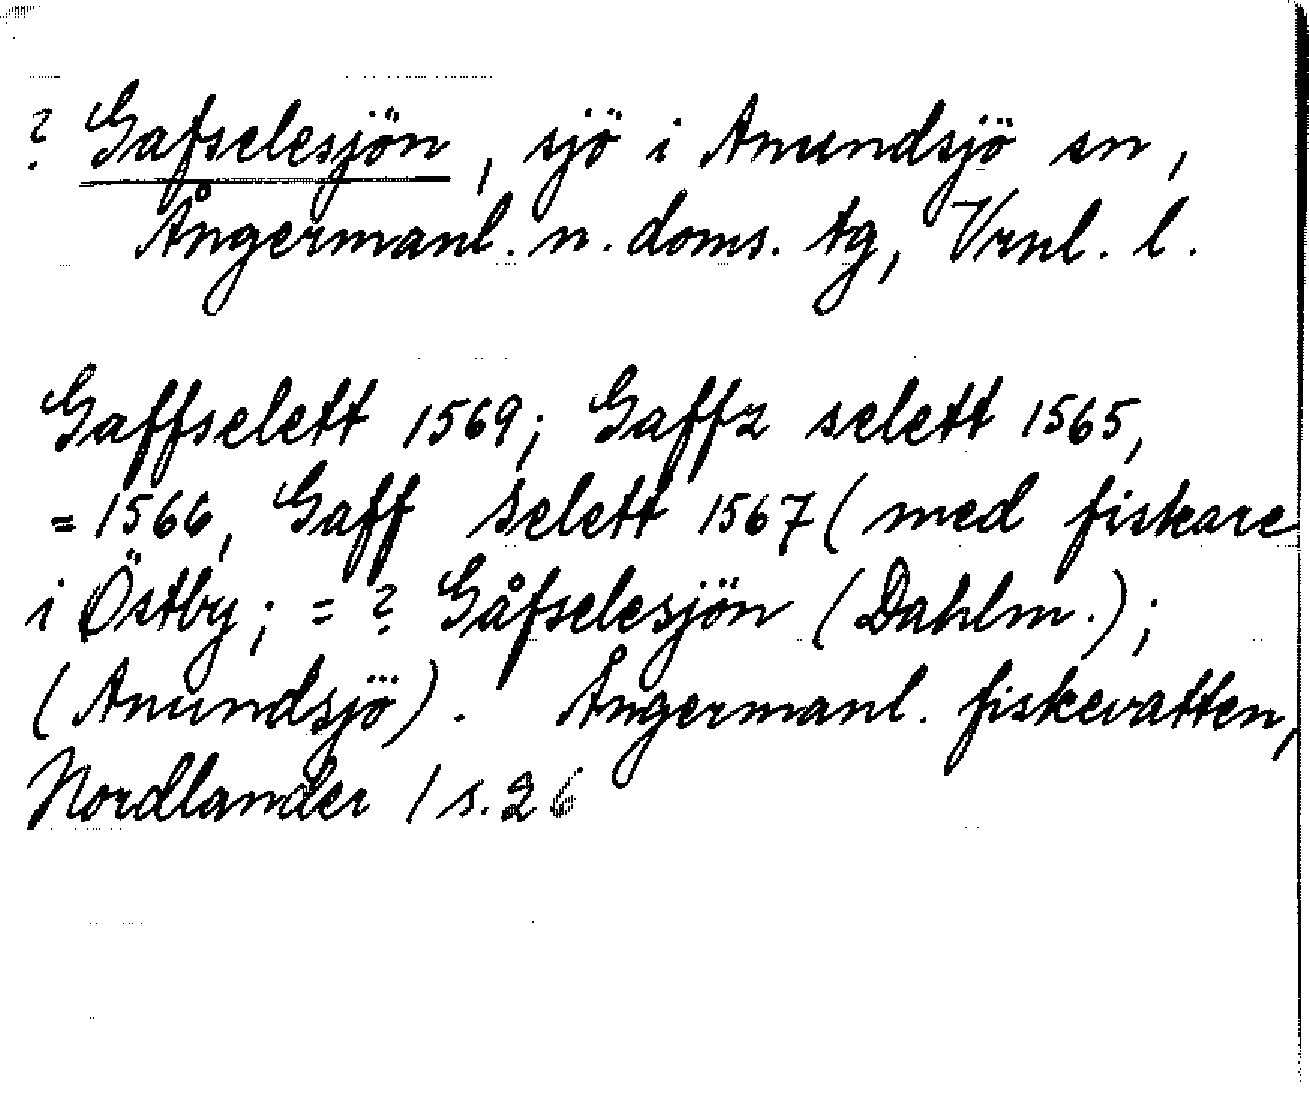 ? Gafselesjön, sjö i Anundsjö sn,
Ångermanl. n. doms. tg, Vrnl. l.
Gaffselett 1569; Gaffz selett 1565,
= 1566, Gaff Selett 1567 (med fiskare
i Östby; = ? Gåfselesjön (Dahlm.);
(Anundsjö). Ångermanl. fiskevatten,
Nordlander 1 s. 26